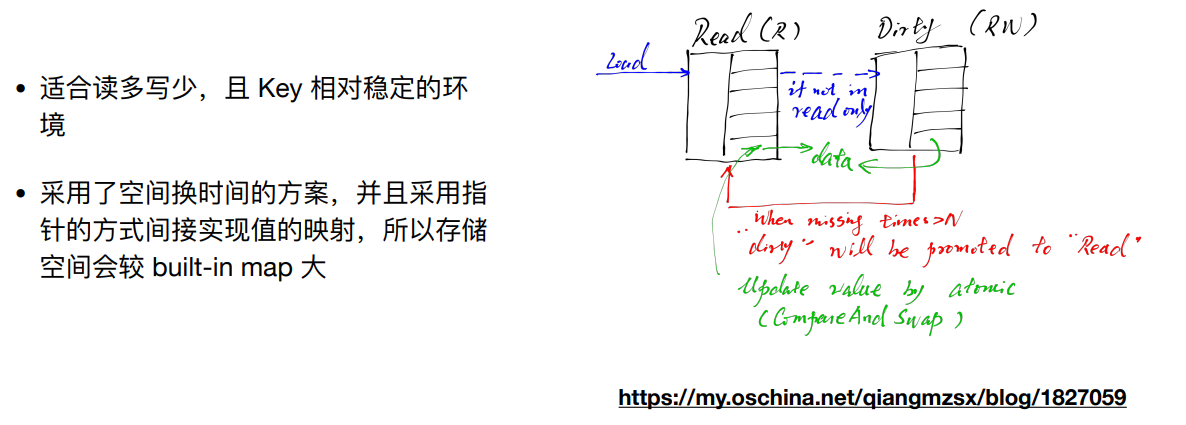 • 适合读多写少，且 Key 相对稳定的环
境
• 采用了空间换时间的方案，并且采用指
针的方式间接实现值的映射，所以存储
空间会较 built-in map 大
Read (R)
Dirty (RW)
Load
if not in
read only
data
When missing times>N
"dirty" will be promoted to "Read"
Update value by atomic
(CompareAndSwap)
https://my.oschina.net/qiangmzsx/blog/1827059